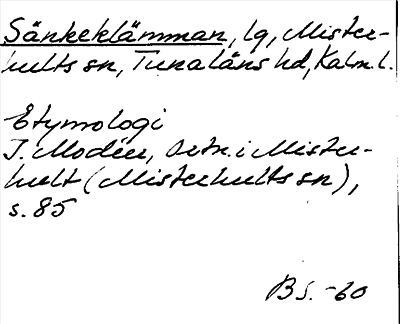 Sänkeklämman, lg, Mister-
hults sn, Tunaläns hd, Kalm. l.
Etymologi
I. Modéer, Ortn. i Mister-
hult (Misterhults sn),
s. 85
BS. -60